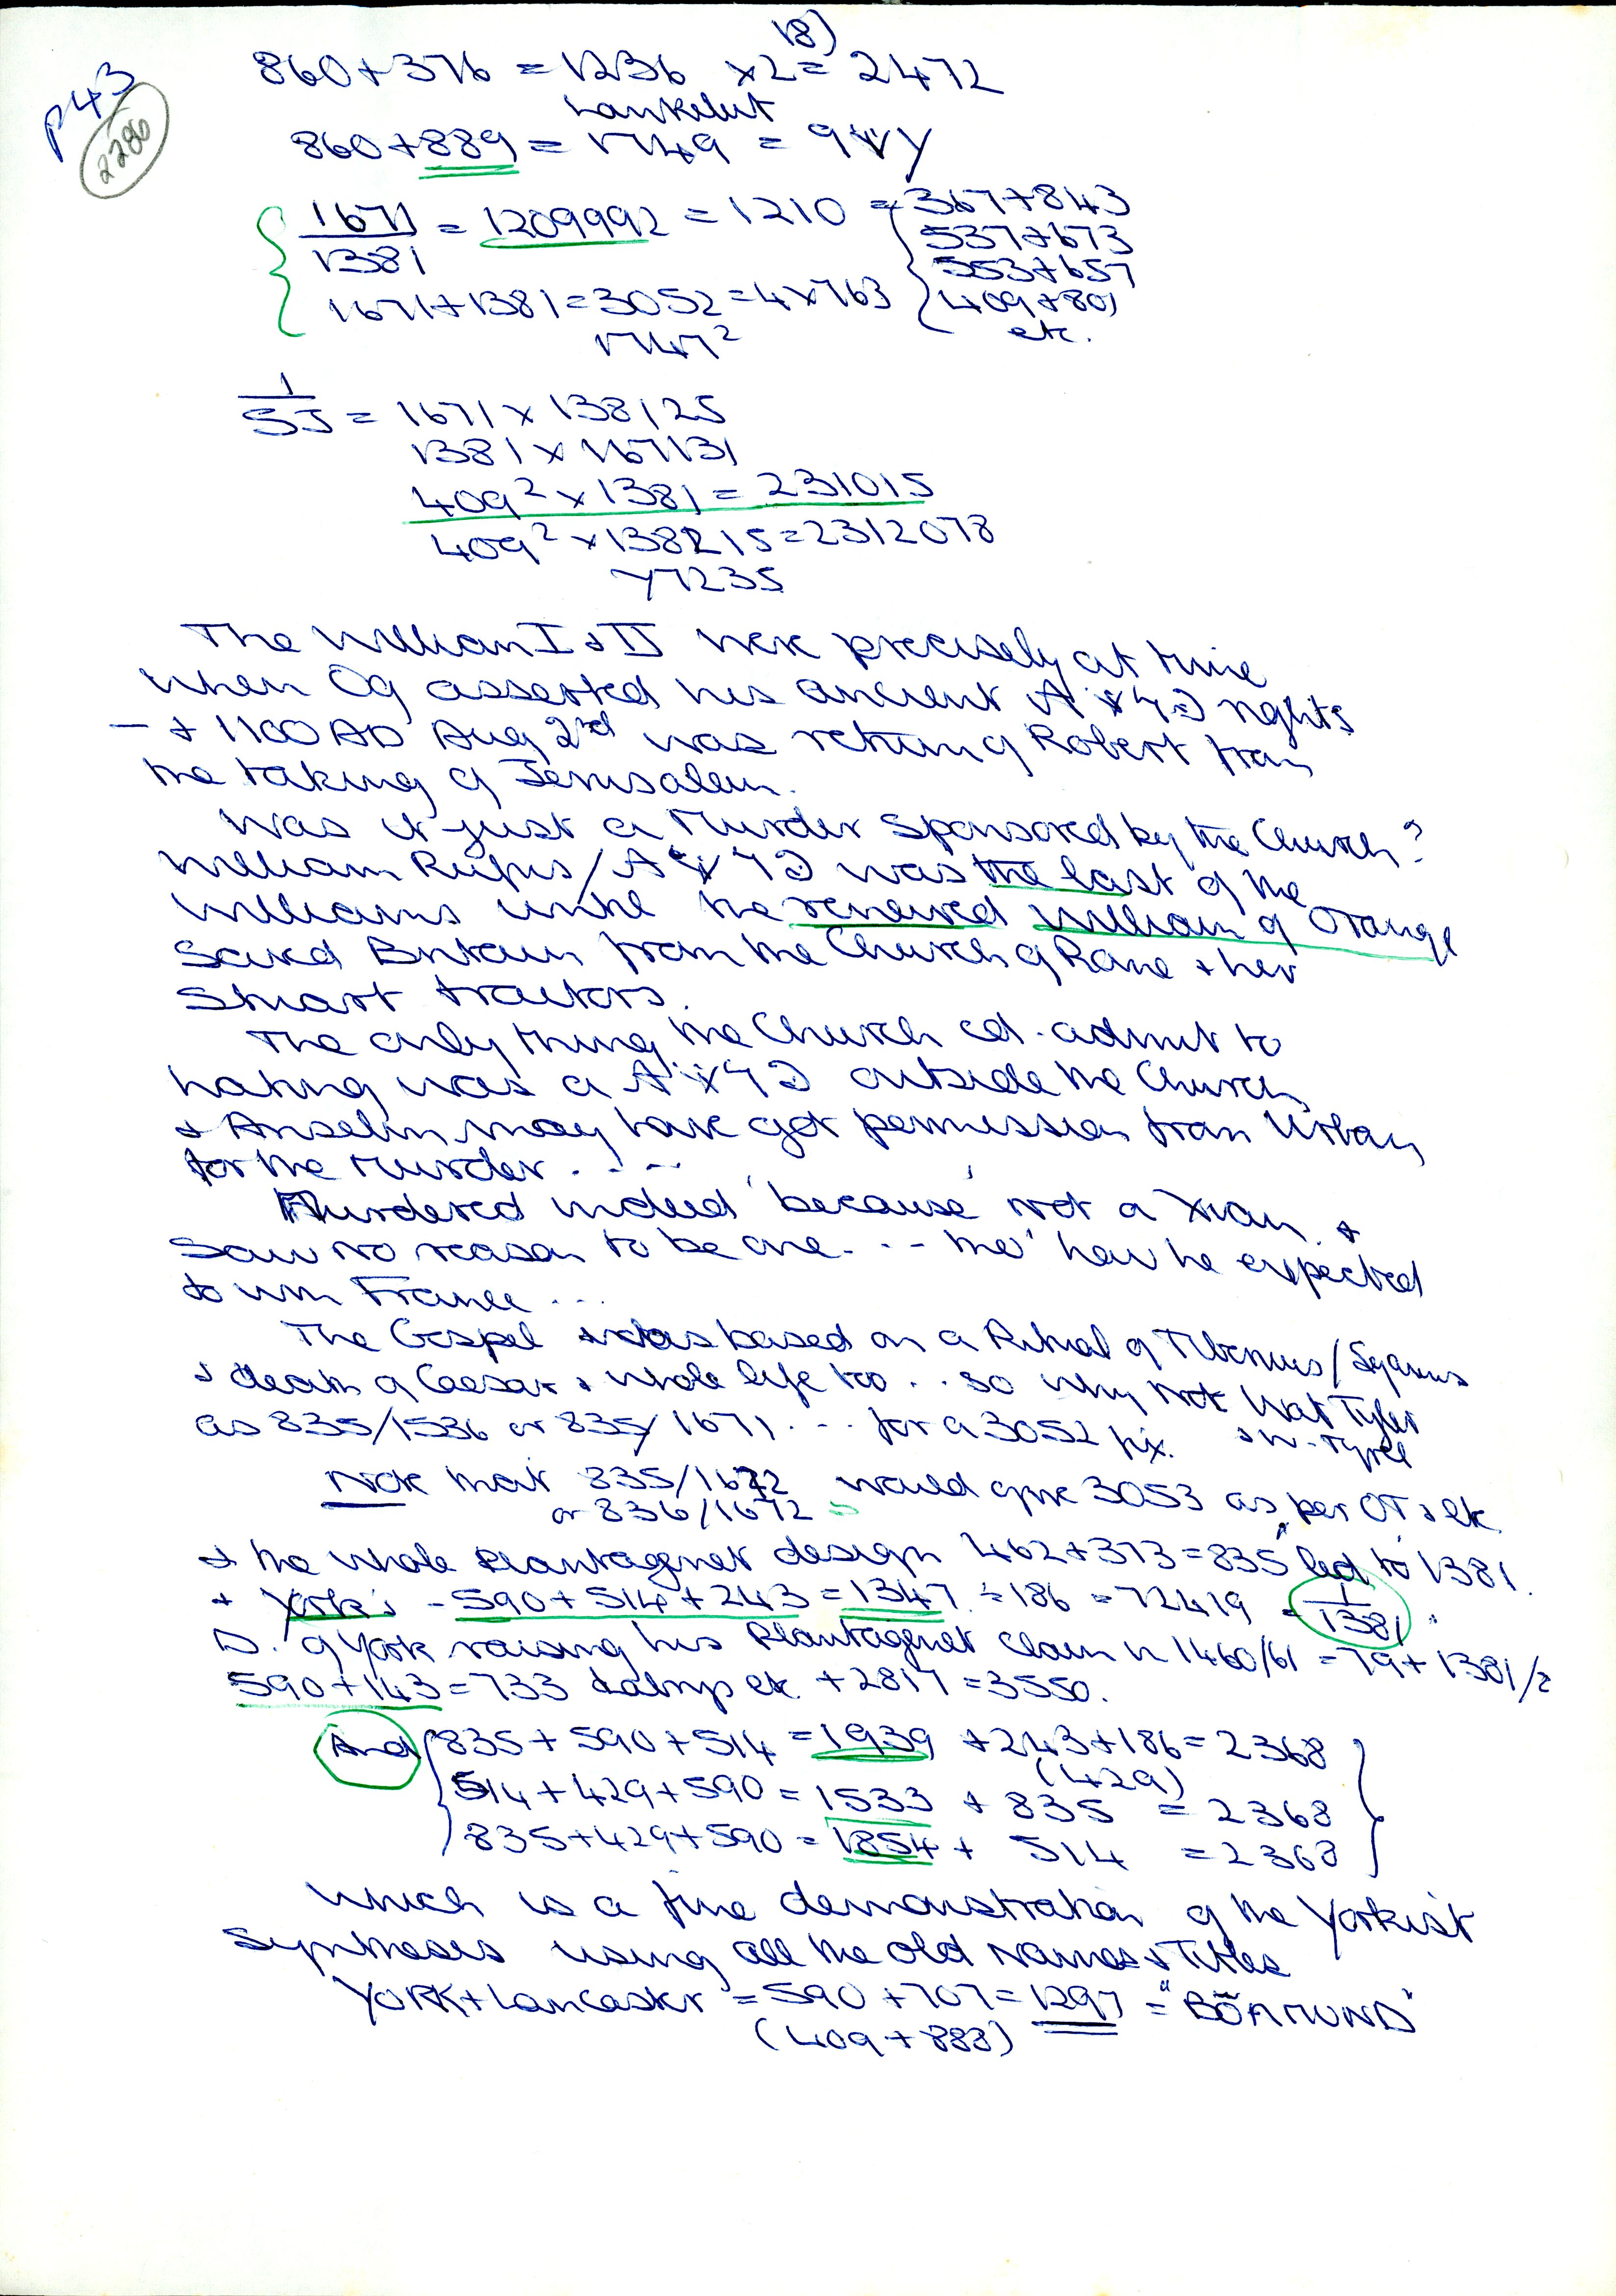 18)
P43
2286
860+376 = 1236 ×2= 2472
Lankelut
860+889 = 1749 =
1671 = 1209992 = 1210 = 367+843
1381
537+673
553+657
1671+1381=3052=4×763
409+801
etc.
1747²
1
55 = 1671 × 138125
1381 × 167131
409² × 1381 = 231015
409² × 138215=2312078
77235
The William I & II were precisely at time
when Og asserted his ancient rights
— & 1100 AD Aug 2nd was return of Robert from
the taking of Jerusalem.
Was it just a Murder sponsored by the Church?
William Rufus/ was the last of the
Williams until the renewed William of Orange
saved Britain from the Church of Rome & her
Stuart traitors.
The only thing the Church cd. admit to
hating was a outside the Church
& Anselm may have got permission from Urban
for the Murder . . . .
Murdered indeed 'because' not a Xian &
saw no reason to be one. . . . tho' how he expected
to win France . . .
The Gospel was based on a Ritual of Tiberius/Sejanus
& death of Caesar & whole life too . . so why not Wat Tyler
as 835/1536 or 835/1671 . . . for a 3052 fix. & W. Tyrel
Note that 835/1672 would give 3053 as per OT & etc.
or 836/1672
& the whole Plantagenet design 462+373=835 led to 1381.
+ York's - 590+514+243=1347 ÷186 = 72419 = 1
1381
D. of York raising his Plantagenet claim in 1460/61 = 79+1381/2
590+143=733 datings etc. +2817=3550.
And 835+590+514 = 1939 +243+186=2368
(429)
514+429+590 = 1533 + 835 = 2368
835+429+590 = 1854 + 514 = 2368
Which is a fine demonstration of the Yorkist
Syntheses using all the old Names & Titles
YORK+Lancaster = 590+707=1297 = "BÕAMUND"
(409+888)